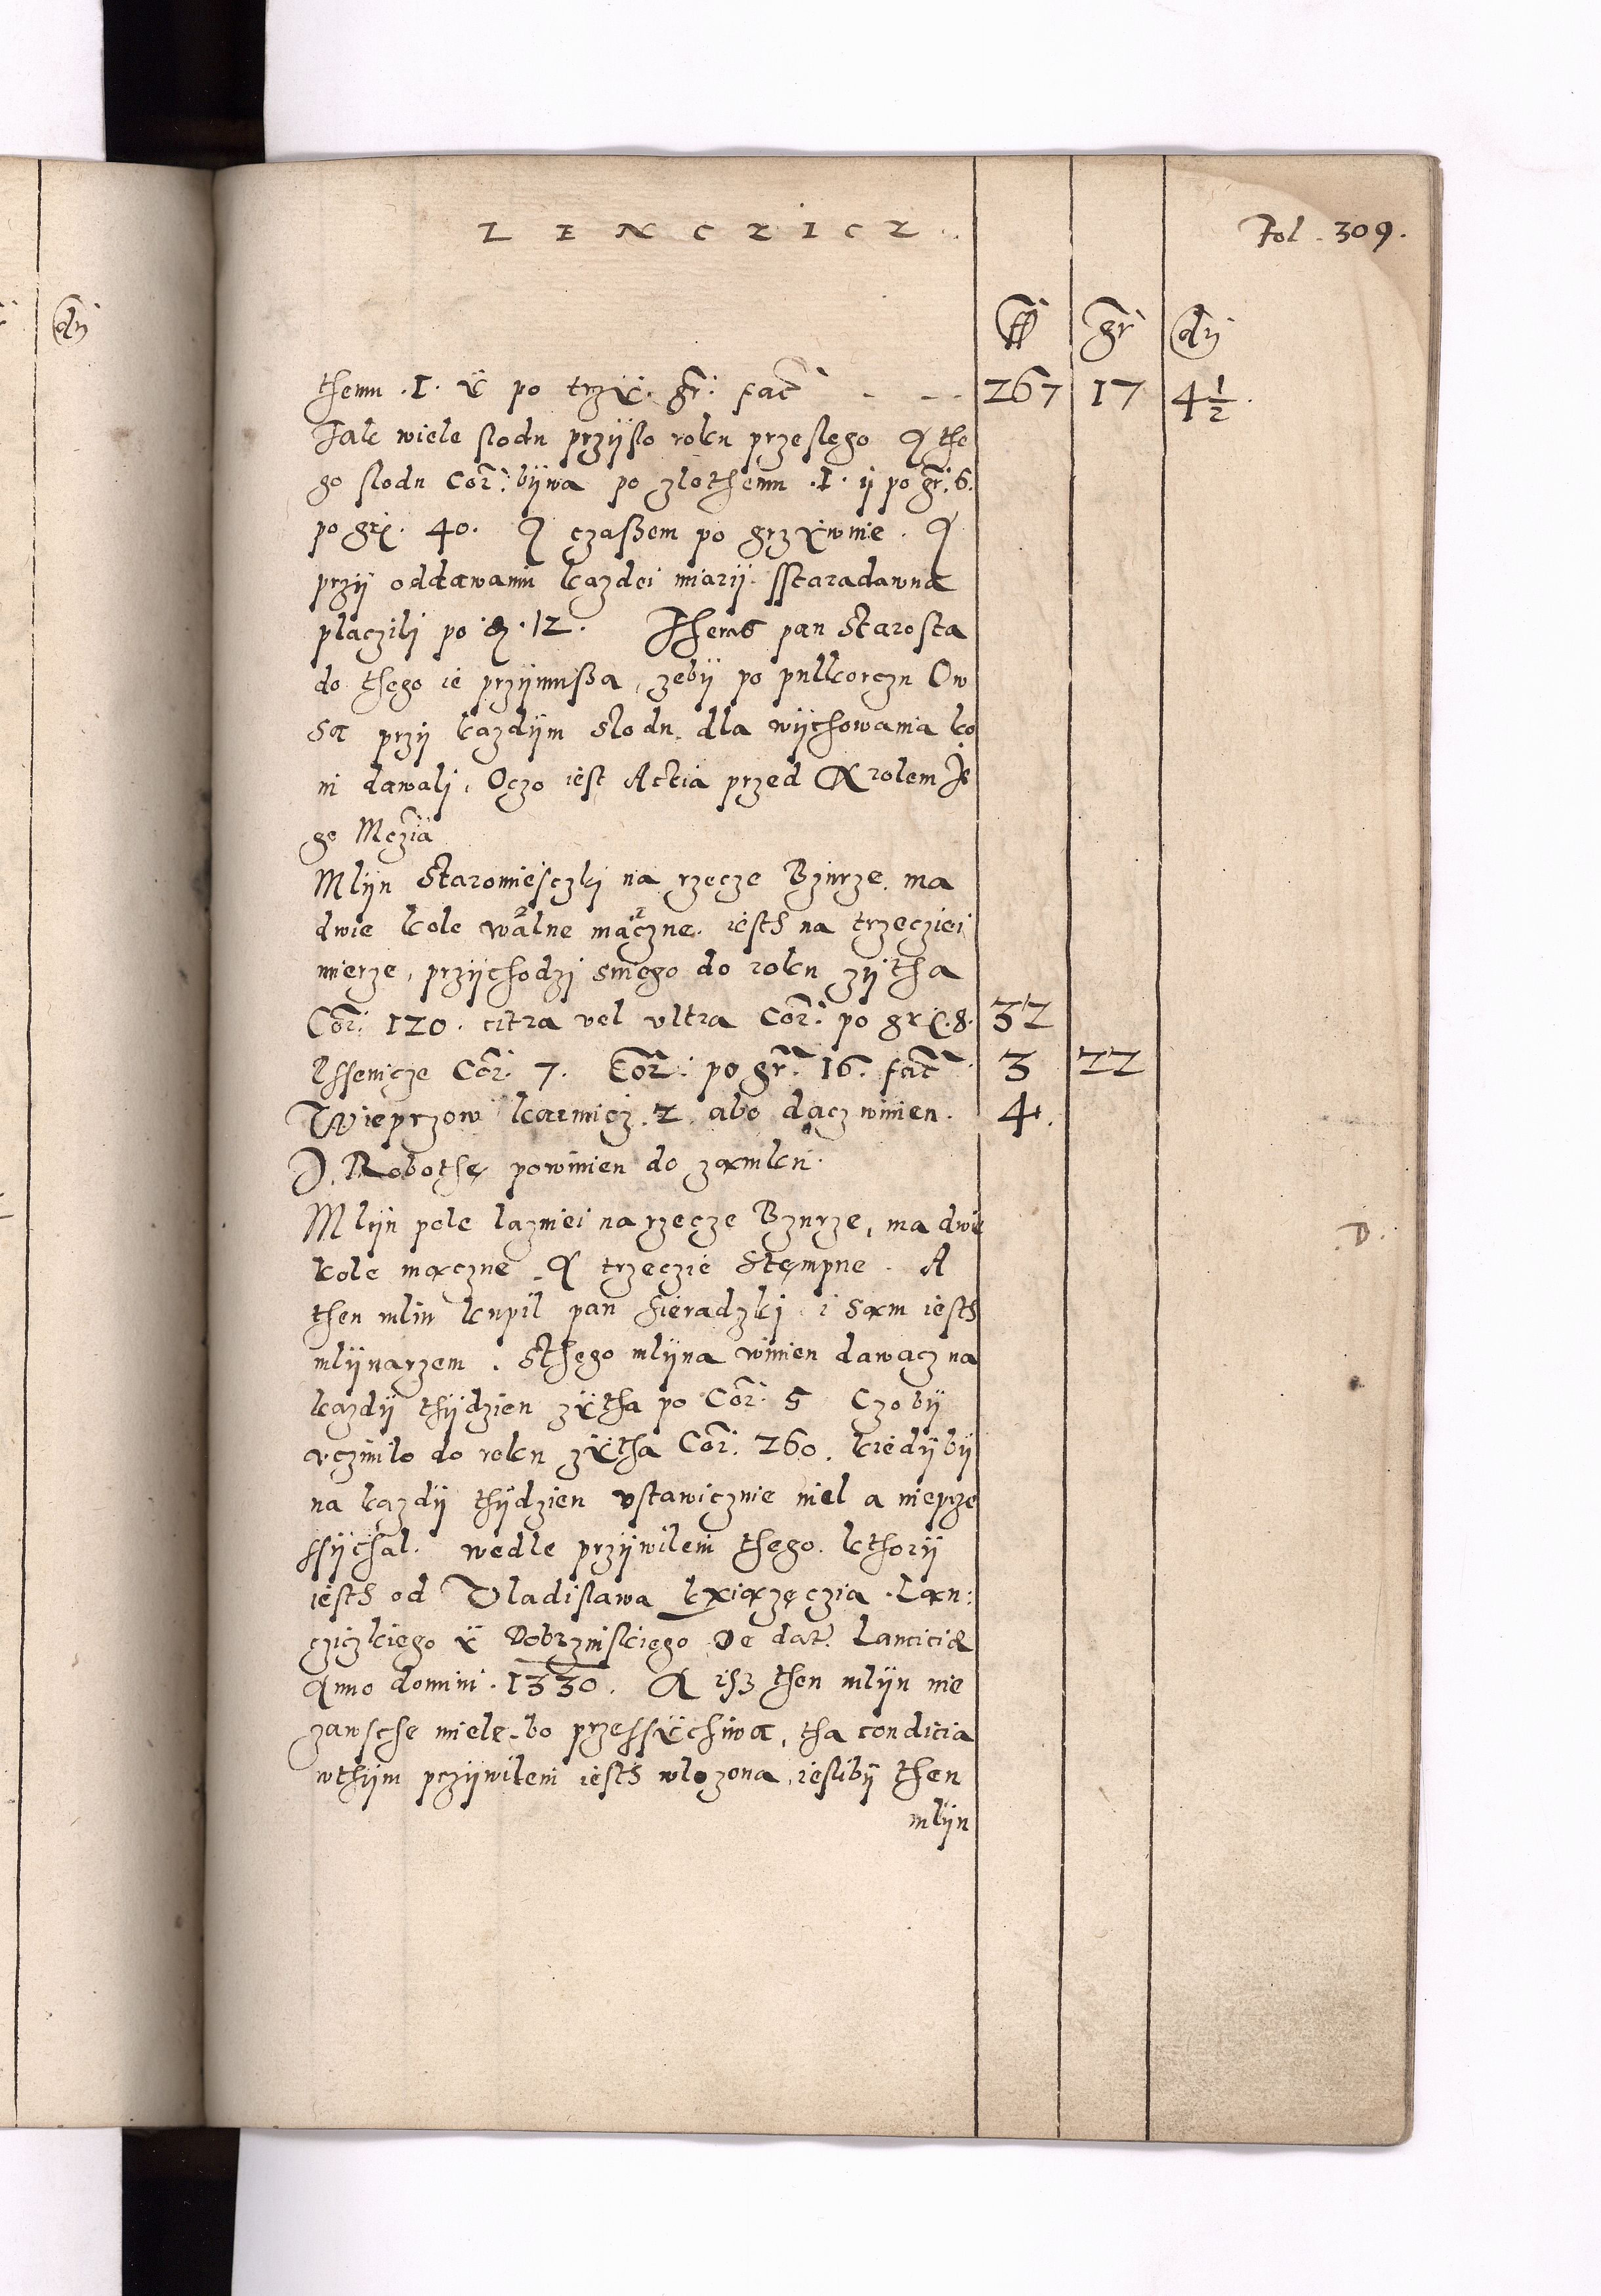 LENCZICZ.
Fol. 309.
ff gr dn
themu .1. ÿ po trzÿ. gr: fac̃ - - - 267 17 4 1/2.
Jak wiele slodu przÿslo roku przeslego A the
go slodu Cor: bÿwa po zlothemu .1. ÿ po gr: 6.
po grę. 40. A czaßem po grzÿwnie. A
przÿ oddawaniu kazdei miarÿ. sstaradawna
placzili po ę. 12. Theras pan Starosta
do thego ie przÿmußa, zebÿ po pullkorczu Ow
sa przÿ kazdÿm slodu. dla wÿchowania ko
ni dawali, Oczo iest Actia przed Krolem Je
go Mczia
Mlÿn Staromiesczki na rzecze Bzurze. ma
dwie kole walne maczne. iesth na trzecziei
mierze, przÿchodzi sniego do roku zÿtha
Cor: 120. citra vel vltra Cor: po grę. 8. 32
Pssenicze Cor: 7. Cor: po gr: 16. fac̃ 3 22
Wieprzow karmicz .2. abo dacz winien. 4.
J. Robothę powinien do zamku.
Mlÿn pole lazniei na rzecze Bzurze, ma dwie
kole maczne A trzeczie Stempne. A
then mlin kupil pan Sieradzki i sam iesth
mlÿnarzem. Sthego mlÿna winien dawacz na
kazdÿ thÿdzien zÿtha po Cor: 5 Czobÿ
vczinilo do roku zÿtha Cor: 260. kiedÿbÿ
na kazdÿ thÿdzien vstawicznie miel a nieprze
ssÿchal. wedle przÿwileiu thego. kthorÿ
iesth od Vladislawa kxiazęczia .Lan:
czickiego ÿ Dobrzinskiego De dat: Lanciciæ
Anno domini .1330. A isz then mlÿn nie
zawsche miele. bo przessÿchiwa, tha conditia
wthÿm przÿwileiu iesth wlozona, ieslibÿ then
mlÿn
.D.
dn